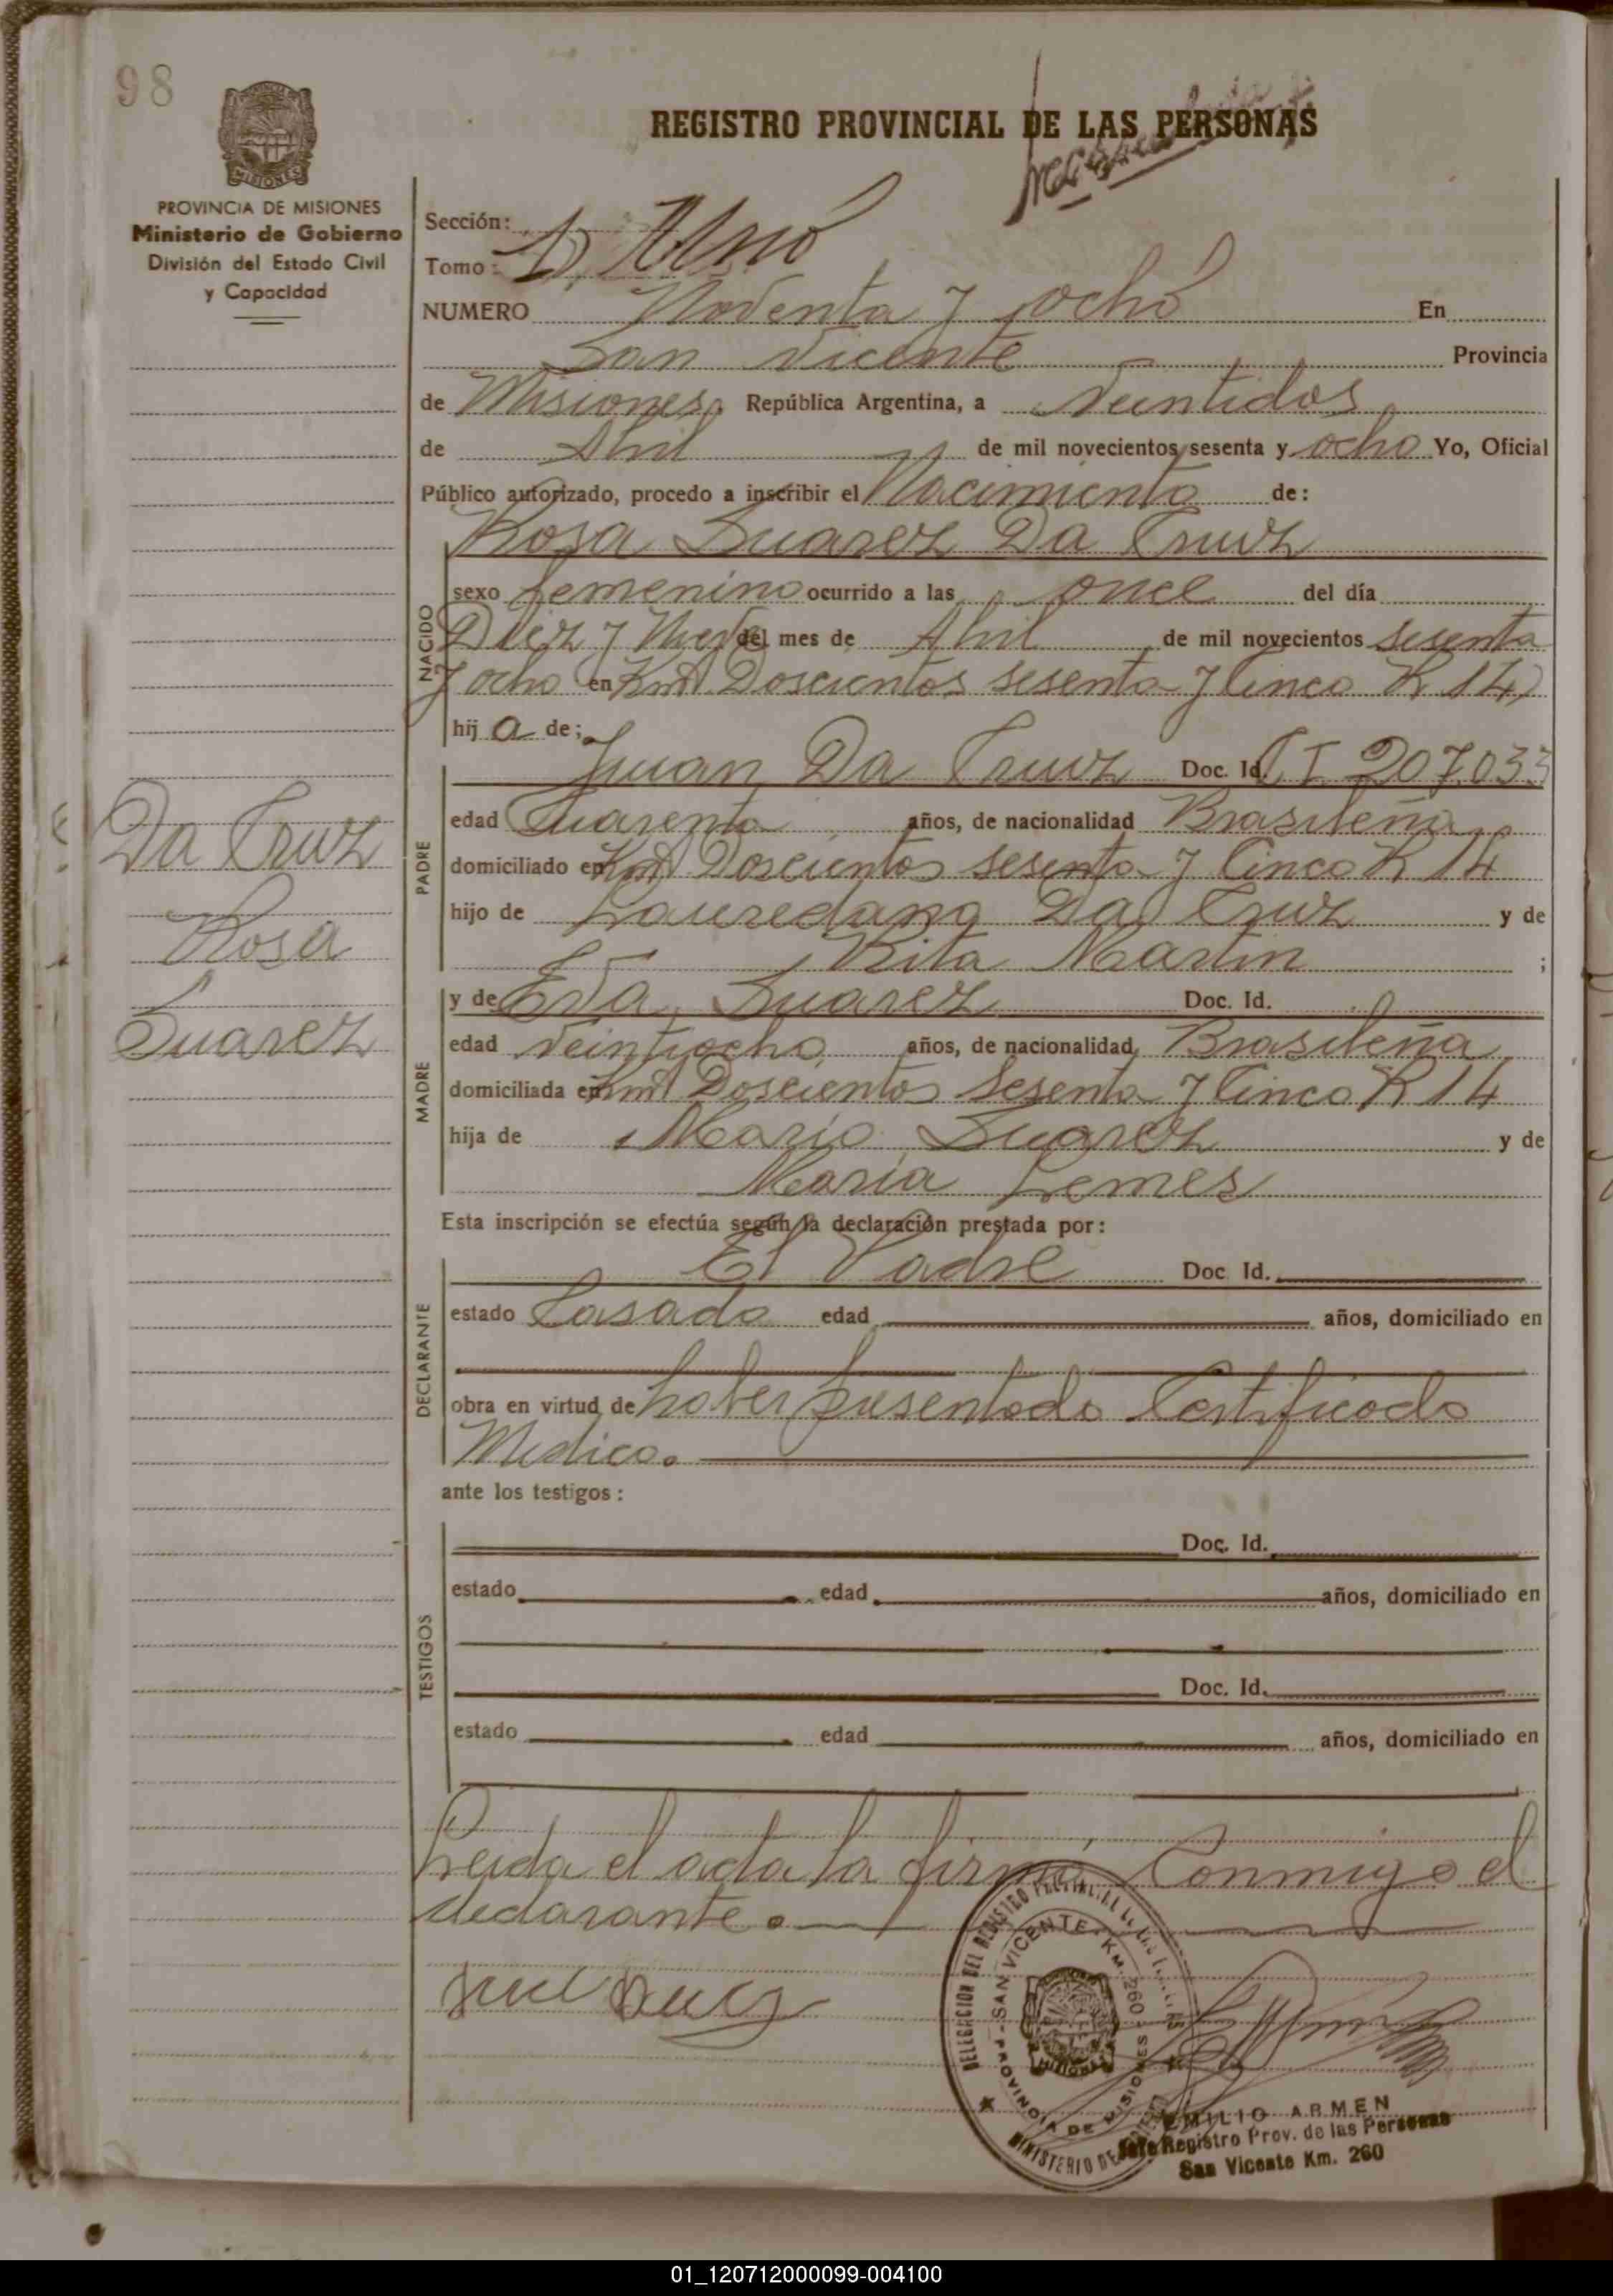 98
PROVINCIA DE MISIONES
Ministerio de Gobierno
División del Estado Civil
y Capacidad
REGISTRO PROVINCIAL DE LAS PERSONAS
Sección:
Tomo: 1) Uno
NUMERO Noventa y ocho En
San Vicente Provincia
de Misiones, República Argentina, a Veintidos
de Abril de mil novecientos sesenta y ocho Yo, Oficial
Público autorizado, procedo a inscribir el Nacimiento de:
Rosa Suarez Da Cruz
NACIDO
sexo femenino ocurrido a las once del día
Diez y Nueve del mes de Abril de mil novecientos sesenta
y ocho en Km Doscientos sesenta y Cinco R 14
hij a de;
Juan Da Cruz Doc. Id. C I 207.033
PADRE
edad Cuarenta años, de nacionalidad Brasileña
domiciliado en Km Doscientos sesenta y Cinco R 14
hijo de Da Cruz y de
Rita Martin ;
y de Eva Suarez Doc. Id.
MADRE
edad Veintiocho años, de nacionalidad Brasileña
domiciliada en Km Doscientos Sesenta y Cinco R 14
hija de Mario Suarez y de
Maria Lemes
Esta inscripción se efectúa según la declaración prestada por:
El Padre Doc. Id.
DECLARANTE
estado Casado edad años, domiciliado en
obra en virtud de haber presentado Certificado
Medico.
ante los testigos:
TESTIGOS
Doc. Id.
estado edad años, domiciliado en
Doc. Id.
estado edad años, domiciliado en
Leida el acta la firmó Conmigo el
declarante.
Da Cruz
Rosa
Suarez
DELEGACION DEL REGISTRO
SAN VICENTE - KM. 260
PROVINCIA DE MISIONES
MISIONES
MINISTERIO DE
EMILIO ARMEN
Jefe Registro Prov. de las Personas
San Vicente Km. 260
01_120712000099-004100